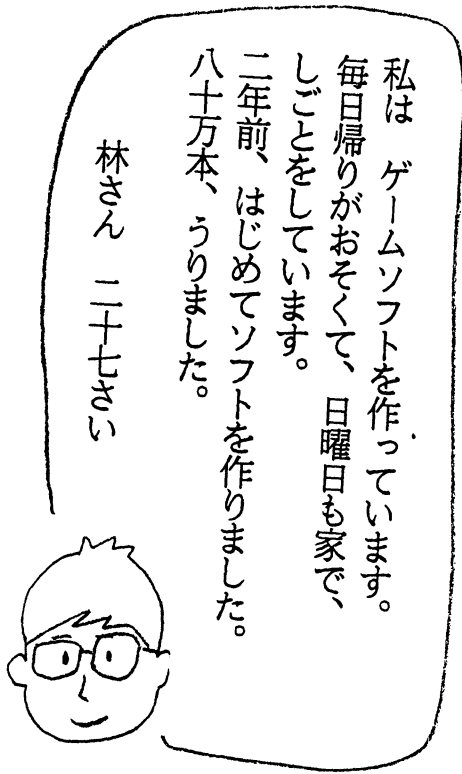 私は　ゲームソフトを作っています。
毎日帰りがおそくて、日曜日も家で、
しごとをしています。
二年前、はじめてソフトを作りました。
八十万本、うりました。
林さん　二十七さい